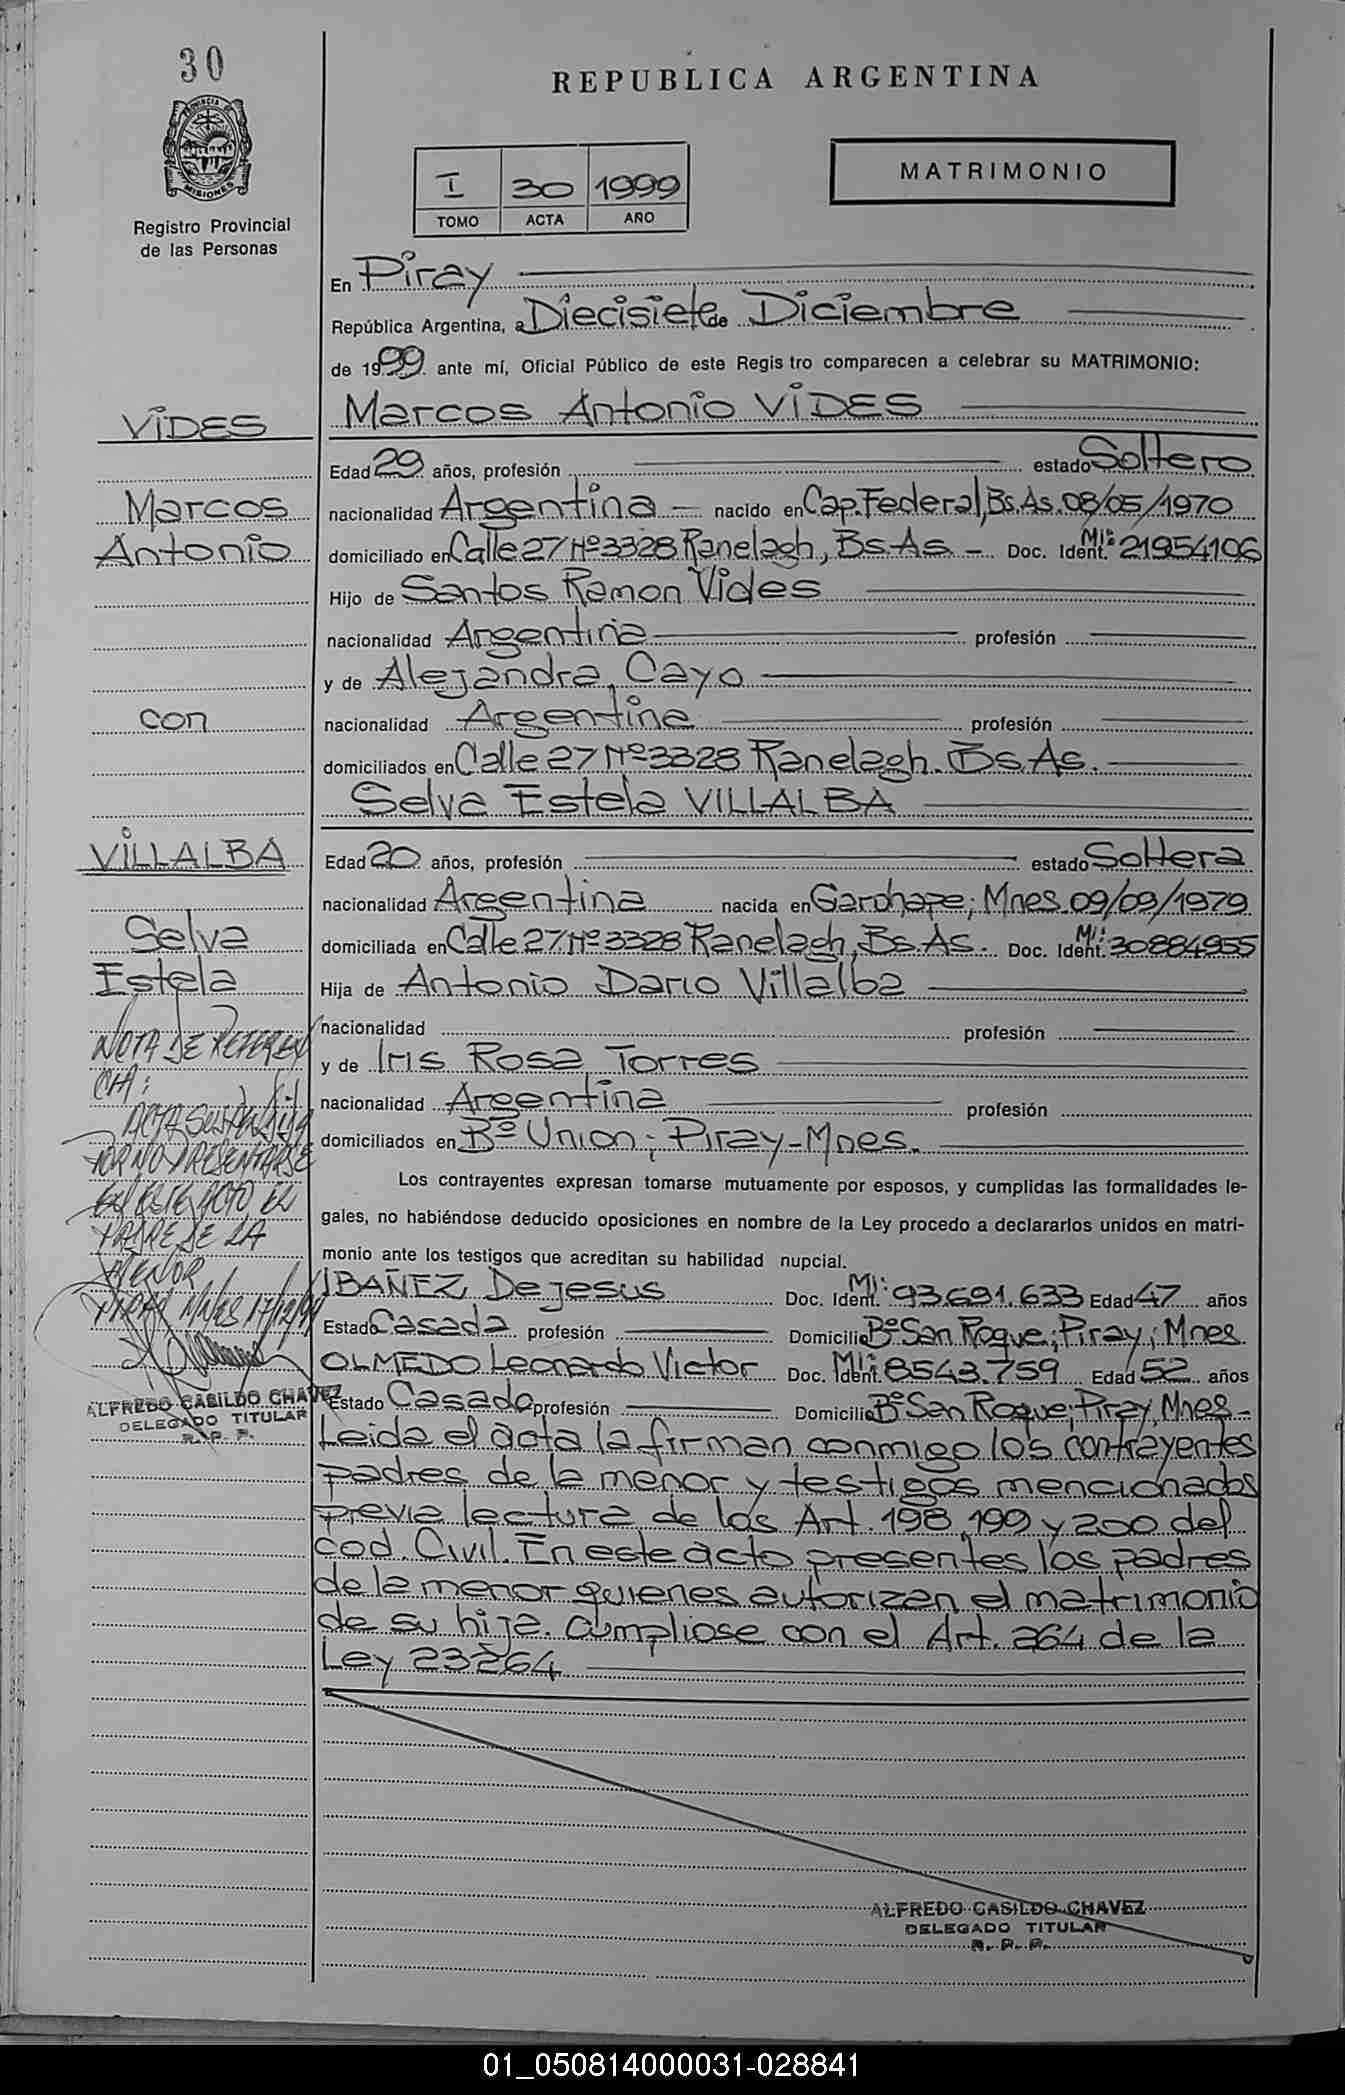 30
PROVINCIA DE
MISIONES
Registro Provincial
de las Personas
REPUBLICA ARGENTINA
I 30 1999
TOMO ACTA AÑO
MATRIMONIO
En Piray
República Argentina, a Diecisiete de Diciembre
de 1999 ante mí, Oficial Público de este Regis tro comparecen a celebrar su MATRIMONIO:
Marcos Antonio VIDES
Edad 29 años, profesión estado Soltero
nacionalidad Argentina - nacido en Cap. Federal, Bs. As. 08/05/1970
domiciliado en Calle 27 Nº 3328 Ranelagh, Bs. As. - Doc. Ident. MI: 21954106
Hijo de Santos Ramon Vides
nacionalidad Argentina profesión
y de Alejandra Cayo
nacionalidad Argentina profesión
domiciliados en Calle 27 Nº 3328 Ranelagh. Bs. As.
Selva Estela VILLALBA
Edad 20 años, profesión estado Soltera
nacionalidad Argentina nacida en Garuhape; Mnes. 09/09/1979
domiciliada en Calle 27 Nº 3328 Ranelagh, Bs. As. Doc. Ident. MI: 30884955
Hija de Antonio Dario Villalba
nacionalidad profesión
y de Iris Rosa Torres
nacionalidad Argentina profesión
domiciliados en Bº Union; Piray-Mnes.
Los contrayentes expresan tomarse mutuamente por esposos, y cumplidas las formalidades le-
gales, no habiéndose deducido oposiciones en nombre de la Ley procedo a declararlos unidos en matri-
monio ante los testigos que acreditan su habilidad nupcial.
IBAÑEZ, De jesus Doc. Ident. MI: 93.691.633 Edad 47 años
Estado Casada profesión Domicilio Bº San Roque; Piray; Mnes.
OLMEDO Leonardo Victor Doc. Ident. MI: 8543.759 Edad 52 años
Estado Casado profesión Domicilio Bº San Roque; Piray, Mnes-
Leida el acta la firman conmigo los contrayentes
padres de la menor y testigos mencionados
previa lectura de los Art. 198, 199 y 200 del
Cod. Civil. En este acto presentes los padres
de la menor quienes autorizan el matrimonio
de su hija. Cumpliose con el Art. 264 de la
Ley 23264
ALFREDO CASILDO CHAVEZ
DELEGADO TITULAR
R. P. P.
VIDES
Marcos
Antonio
con
VILLALBA
Selva
Estela
NOTA DE REFEREN
CIA:
ACTA SUSPENDIDA
POR NO PRESENTARSE
EN ESTE ACTO EL
PADRE DE LA
MENOR
PIRAY MNES 17/12/99
ALFREDO CASILDO CHAVEZ
DELEGADO TITULAR
R. P. P.
01_050814000031-028841